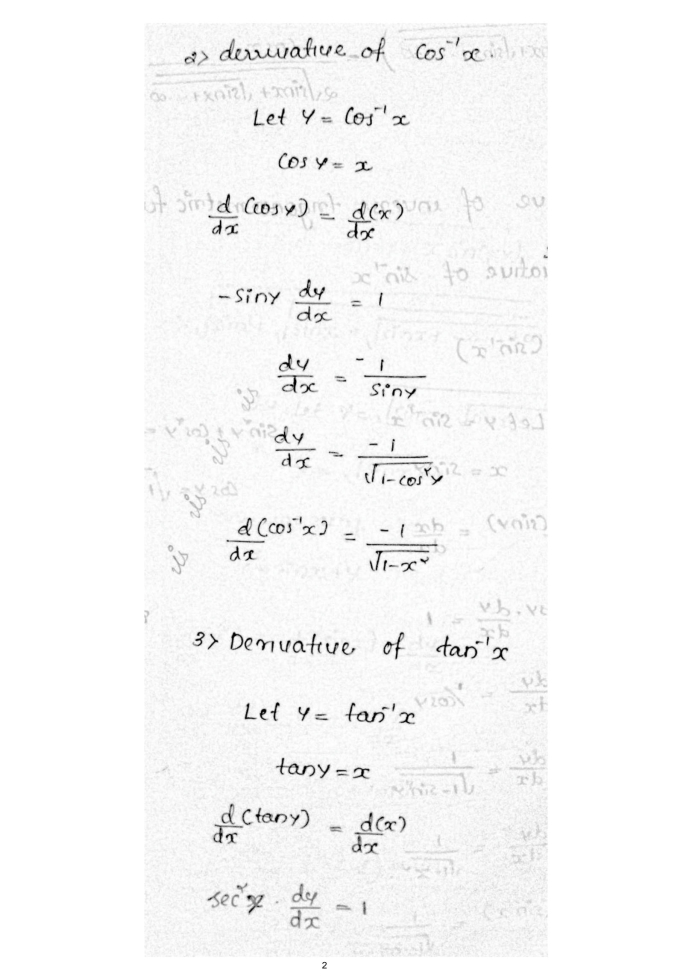 2> derivative of Cos⁻¹x
Let Y = Cos⁻¹x
Cos y = x
d/dx (cos y) = d(x)/dx
-Siny dy/dx = 1
dy/dx = -1/Siny
dy/dx = -1/√1-cos²y
d(cos⁻¹x)/dx = -1/√1-x²
3> Derivative of tan⁻¹x
Let y = tan⁻¹x
tany = x
d/dx (tany) = d(x)/dx
sec² . dy/dx = 1
2